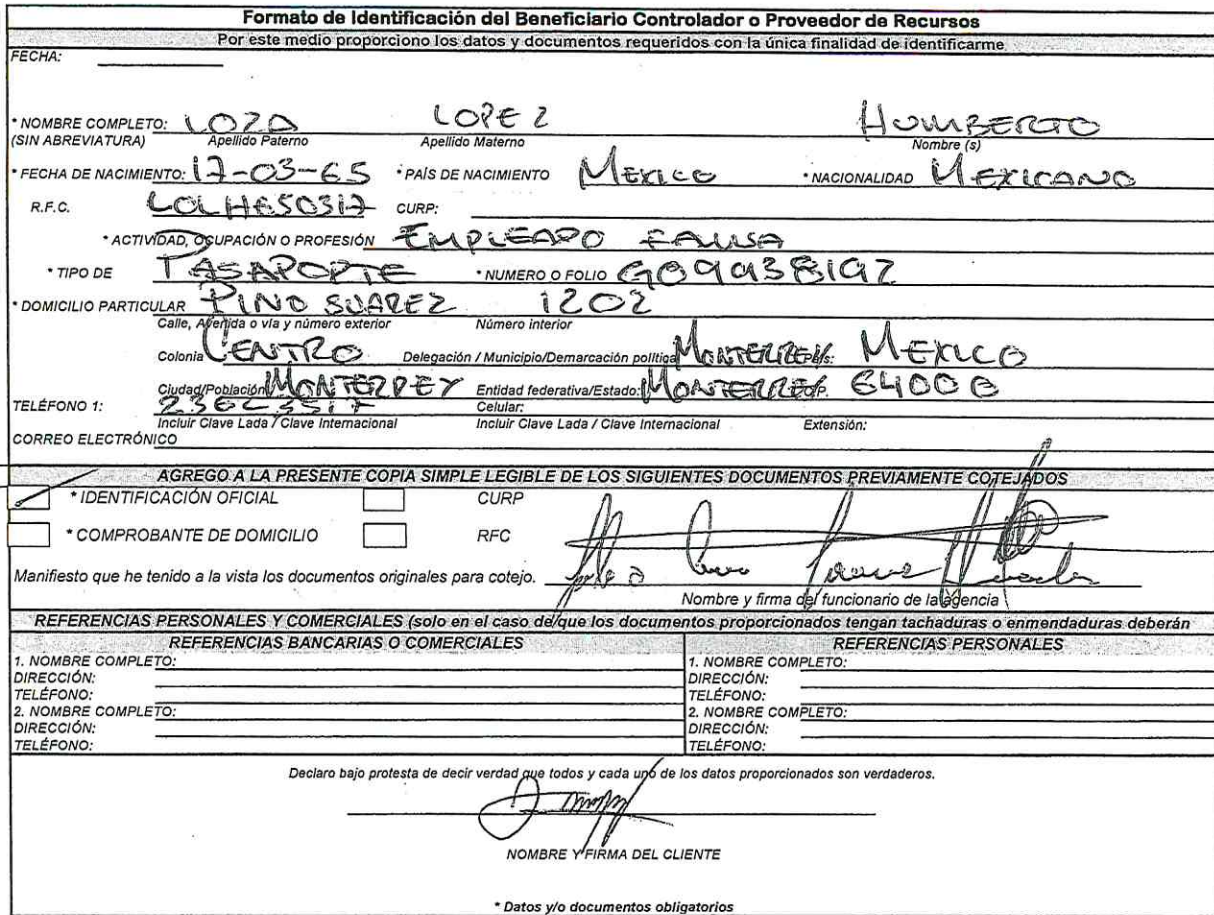 Formato de Identificación del Beneficiario Controlador o Proveedor de Recursos
Por este medio proporciono los datos y documentos requeridos con la única finalidad de identificarme
FECHA:
* NOMBRE COMPLETO: LOZA LOPEZ HUMBERTO
(SIN ABREVIATURA) Apellido Paterno Apellido Materno Nombre (s)
* FECHA DE NACIMIENTO: 17-03-65 * PAÍS DE NACIMIENTO MEXICO * NACIONALIDAD MEXICANO
R.F.C. LOLH650317 CURP:
* ACTIVIDAD, OCUPACIÓN O PROFESIÓN EMPLEADO
* TIPO DE PASAPORTE * NUMERO O FOLIO G09938192
* DOMICILIO PARTICULAR PINO SUAREZ 1202
Calle, Avenida o vía y número exterior Número interior
Colonia CENTRO Delegación / Municipio/Demarcación política MONTERREY MEXICO
Ciudad/Población MONTERREY Entidad federativa/Estado: MONTERREY 64000
TELÉFONO 1: Celular:
Incluir Clave Lada / Clave Internacional Incluir Clave Lada / Clave Internacional Extensión:
CORREO ELECTRÓNICO
AGREGO A LA PRESENTE COPIA SIMPLE LEGIBLE DE LOS SIGUIENTES DOCUMENTOS PREVIAMENTE COTEJADOS
* IDENTIFICACIÓN OFICIAL CURP
* COMPROBANTE DE DOMICILIO RFC
Manifiesto que he tenido a la vista los documentos originales para cotejo.
Nombre y firma del funcionario de la agencia
REFERENCIAS PERSONALES Y COMERCIALES (solo en el caso de que los documentos proporcionados tengan tachaduras o enmendaduras deberán
REFERENCIAS BANCARIAS O COMERCIALES REFERENCIAS PERSONALES
1. NOMBRE COMPLETO: 1. NOMBRE COMPLETO:
DIRECCIÓN: DIRECCIÓN:
TELÉFONO: TELÉFONO:
2. NOMBRE COMPLETO: 2. NOMBRE COMPLETO:
DIRECCIÓN: DIRECCIÓN:
TELÉFONO: TELÉFONO:
Declaro bajo protesta de decir verdad que todos y cada uno de los datos proporcionados son verdaderos.
NOMBRE Y FIRMA DEL CLIENTE
* Datos y/o documentos obligatorios